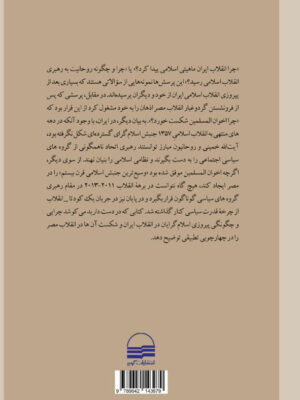 «چرا انقلاب ایران ماهیتی اسلامی پیدا کرد؟»، یا «چرا و چگونه روحانیت به رهبری
انقلاب اسلامی رسید؟»، این پرسش‌ها نمونه‌هایی از سؤالاتی هستند که بسیاری بعد از
پیروزی انقلاب اسلامی ایران از خود و دیگران پرسیده‌اند. در مقابل، پرسشی که پس
از فرونشستن گردوغبار انقلاب مصر اذهان را به خود مشغول کرد از این قرار بود که
«چرا اخوان المسلمین شکست خورد؟». به بیان دیگر، در ایران، با وجود آنکه در دهه
های منتهی به انقلاب اسلامی ۱۳۵۷ جنبش اسلام گرای گسترده‌ای شکل نگرفته بود،
آیت‌الله خمینی و روحانیون مبارز توانستند رهبری اتحاد ناهمگونی از گروه های
سیاسی اجتماعی را به دست بگیرند و نظامی اسلامی را بنیان نهند. از سوی دیگر،
اگرچه اخوان المسلمین موفق شده بود «وسیع ترین جنبش اسلامی قرن بیستم» را در
مصر ایجاد کند، هیچ گاه نتوانست در برهۀ انقلاب ۲۰۱۱-۲۰۱۳ در مقام رهبری
گروه های سیاسی گوناگون قرار بگیرد و در پایان نیز در جریان یک کودتا _ انقلاب
از چرخۀ قدرت سیاسی کنار گذاشته شد. کتابی که در دست دارید می‌کوشد چرایی
و چگونگی پیروزی اسلام گرایان در انقلاب ایران و شکست آن ها در انقلاب مصر
را در چهارچوبی تطبیقی توضیح دهد.
انتشارات کویر
9 789642 143979